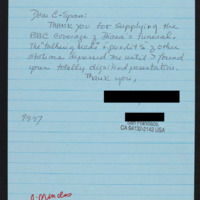 Dear C-Span:
Thank you for supplying the
BBC Coverage of Diana's funeral.
The "talking heads" + pundits & other
depressed me until I found
your totally dignified presentation.
Thank you,
San Francisco,
CA 94132-2143 USA